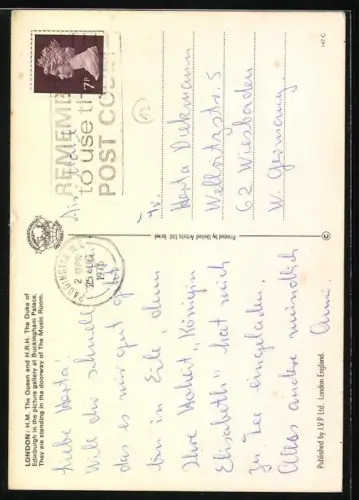 LONDON: H.M. The Queen and H.R.H. The Duke of
Edinburgh in the picture gallery at Buckingham Palace.
They are standing in the doorway of The Music Room.
Liebe Herta!
Will dir schnell
das es mir gut geht
bin in Eile, denn
Ihre Hoheit "Königin
Elisabeth" hat mich
zu Tee eingeladen.
Alles andere mündlich
Published by L.V.P Ltd. London England
Printed by United Artists Ltd Israel
PADDINGTON W.2
2
25 AUG
1976
REMEMBER
to use the
POST CODE
7P
Air Mail
Fr.
Herta Diekmann
Wellritzstr. 5
62 Wiesbaden
W. Germany.
147 C
©